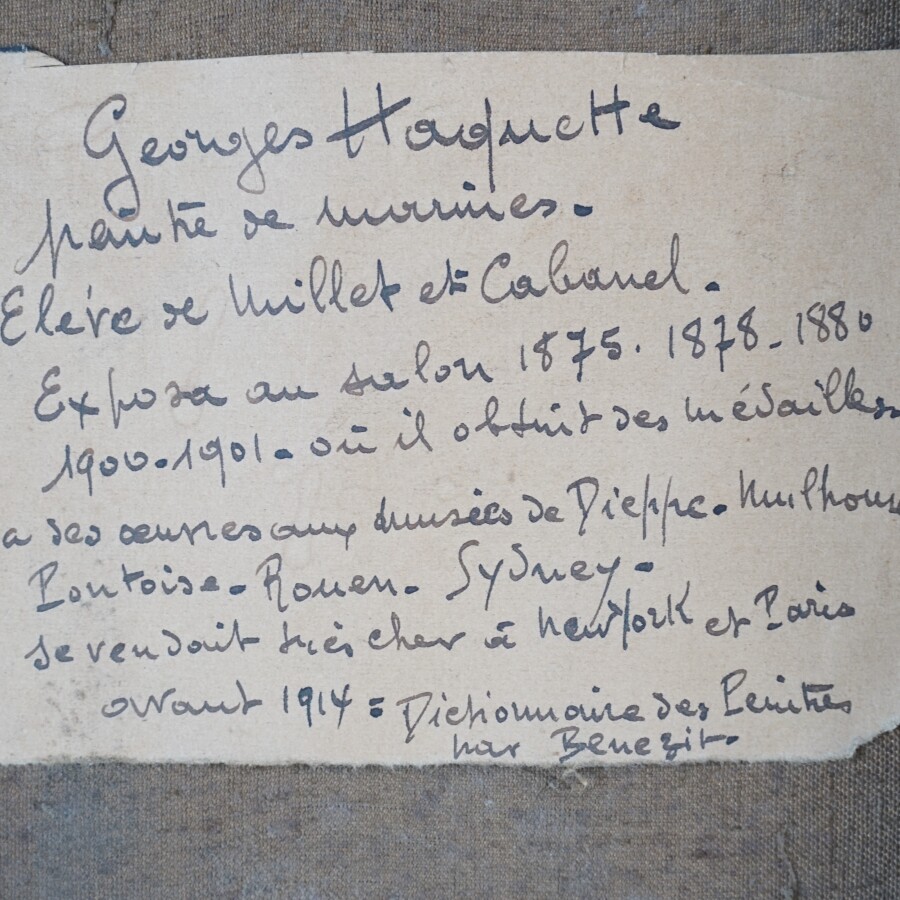 Georges Haquette
peintre de marines.
Elève de Millet et Cabanel.
Exposa au salon 1875. 1878 - 1880
1900 - 1901 - où il obtint des médailles
a des œuvres aux musées de Dieppe - Mulhouse
Pontoise - Rouen - Sydney -
se vendait très cher à New York et Paris
avant 1914 = Dictionnaire des Peintres
par Benezit -